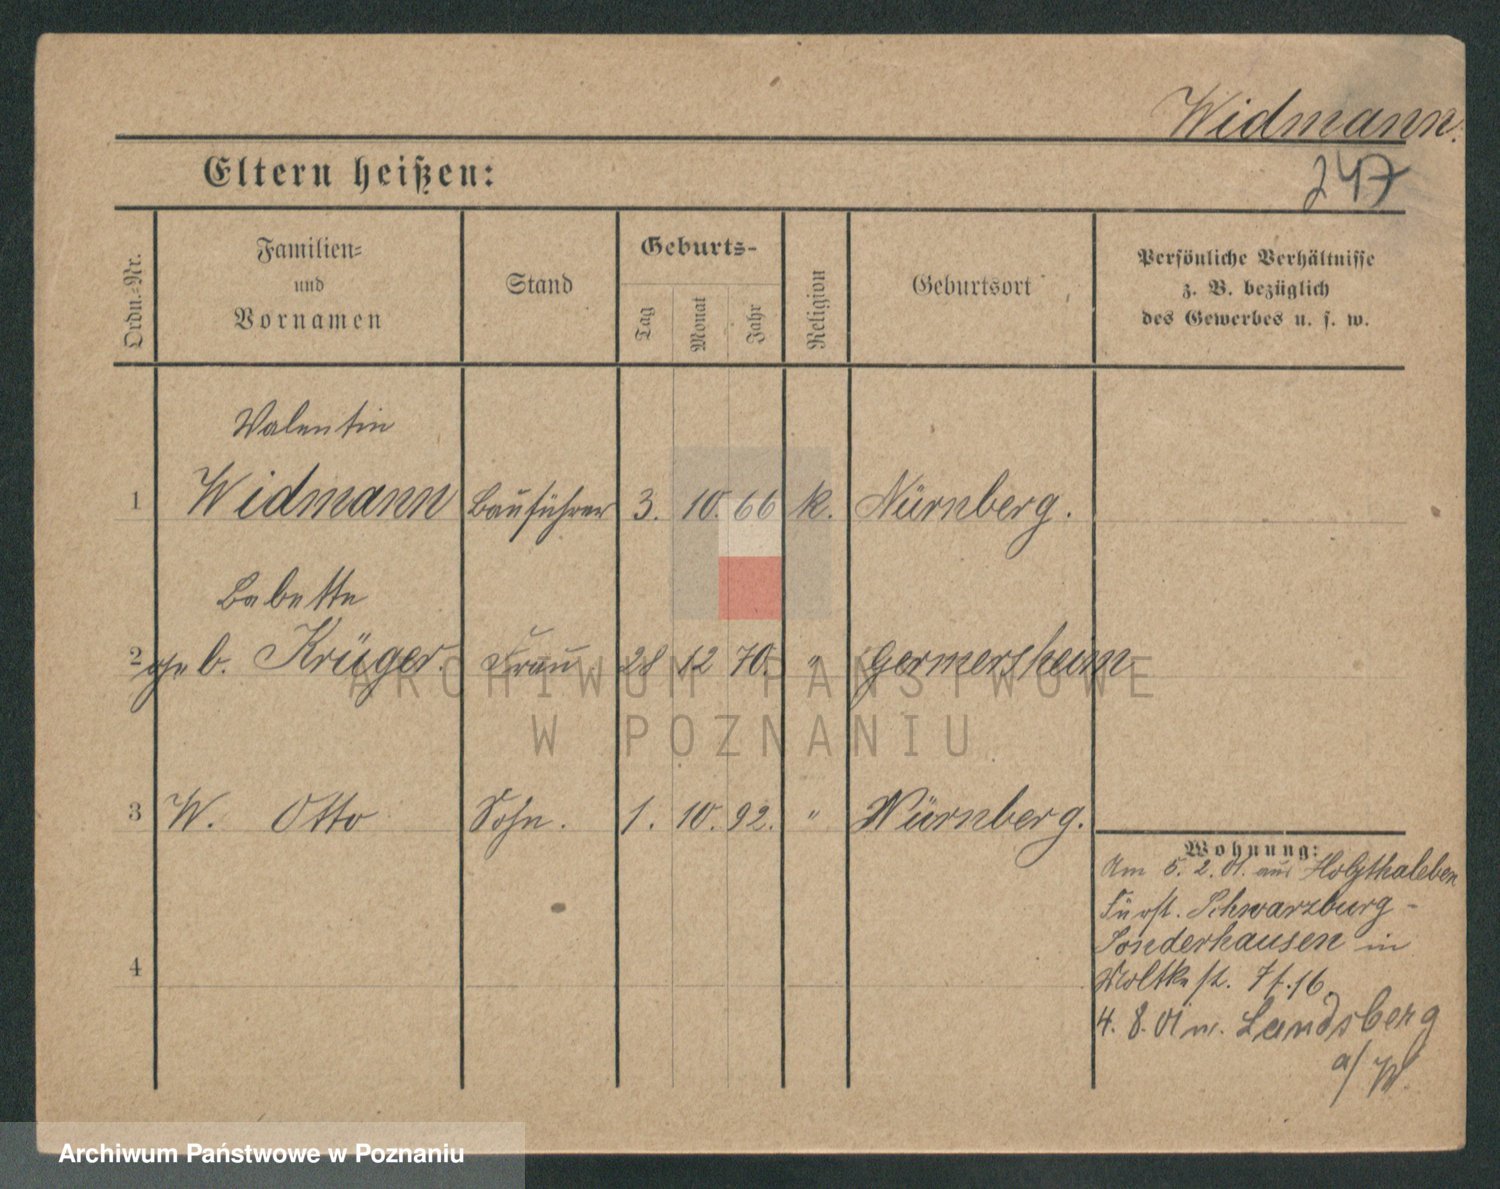 Widmann.
247
Eltern heißen:
Ordn.-Nr.
Familien-
und
Vornamen
Stand
Geburts-
Tag
Monat
Jahr
Religion
Geburtsort
Persönliche Verhältnisse
z. B. bezüglich
des Gewerbes u. s. w.
Valentin
1 Widmann Bauführer 3. 10. 66 k. Nürnberg.
Babette
2 geb. Krüger. Frau 28 12 70. " Germersheim
3 W. Otto Sohn. 1. 10. 92. " Nürnberg.
4
Wohnung:
Am 5. 2. 01. aus Holzthaleben
Fürst. Schwarzburg-
Sonderhausen in
Moltkestr. 7 f. 16.
4. 8. 01 n. Landsberg
a/W.
ARCHIWUM PAŃSTWOWE
W POZNANIU
Archiwum Państwowe w Poznaniu